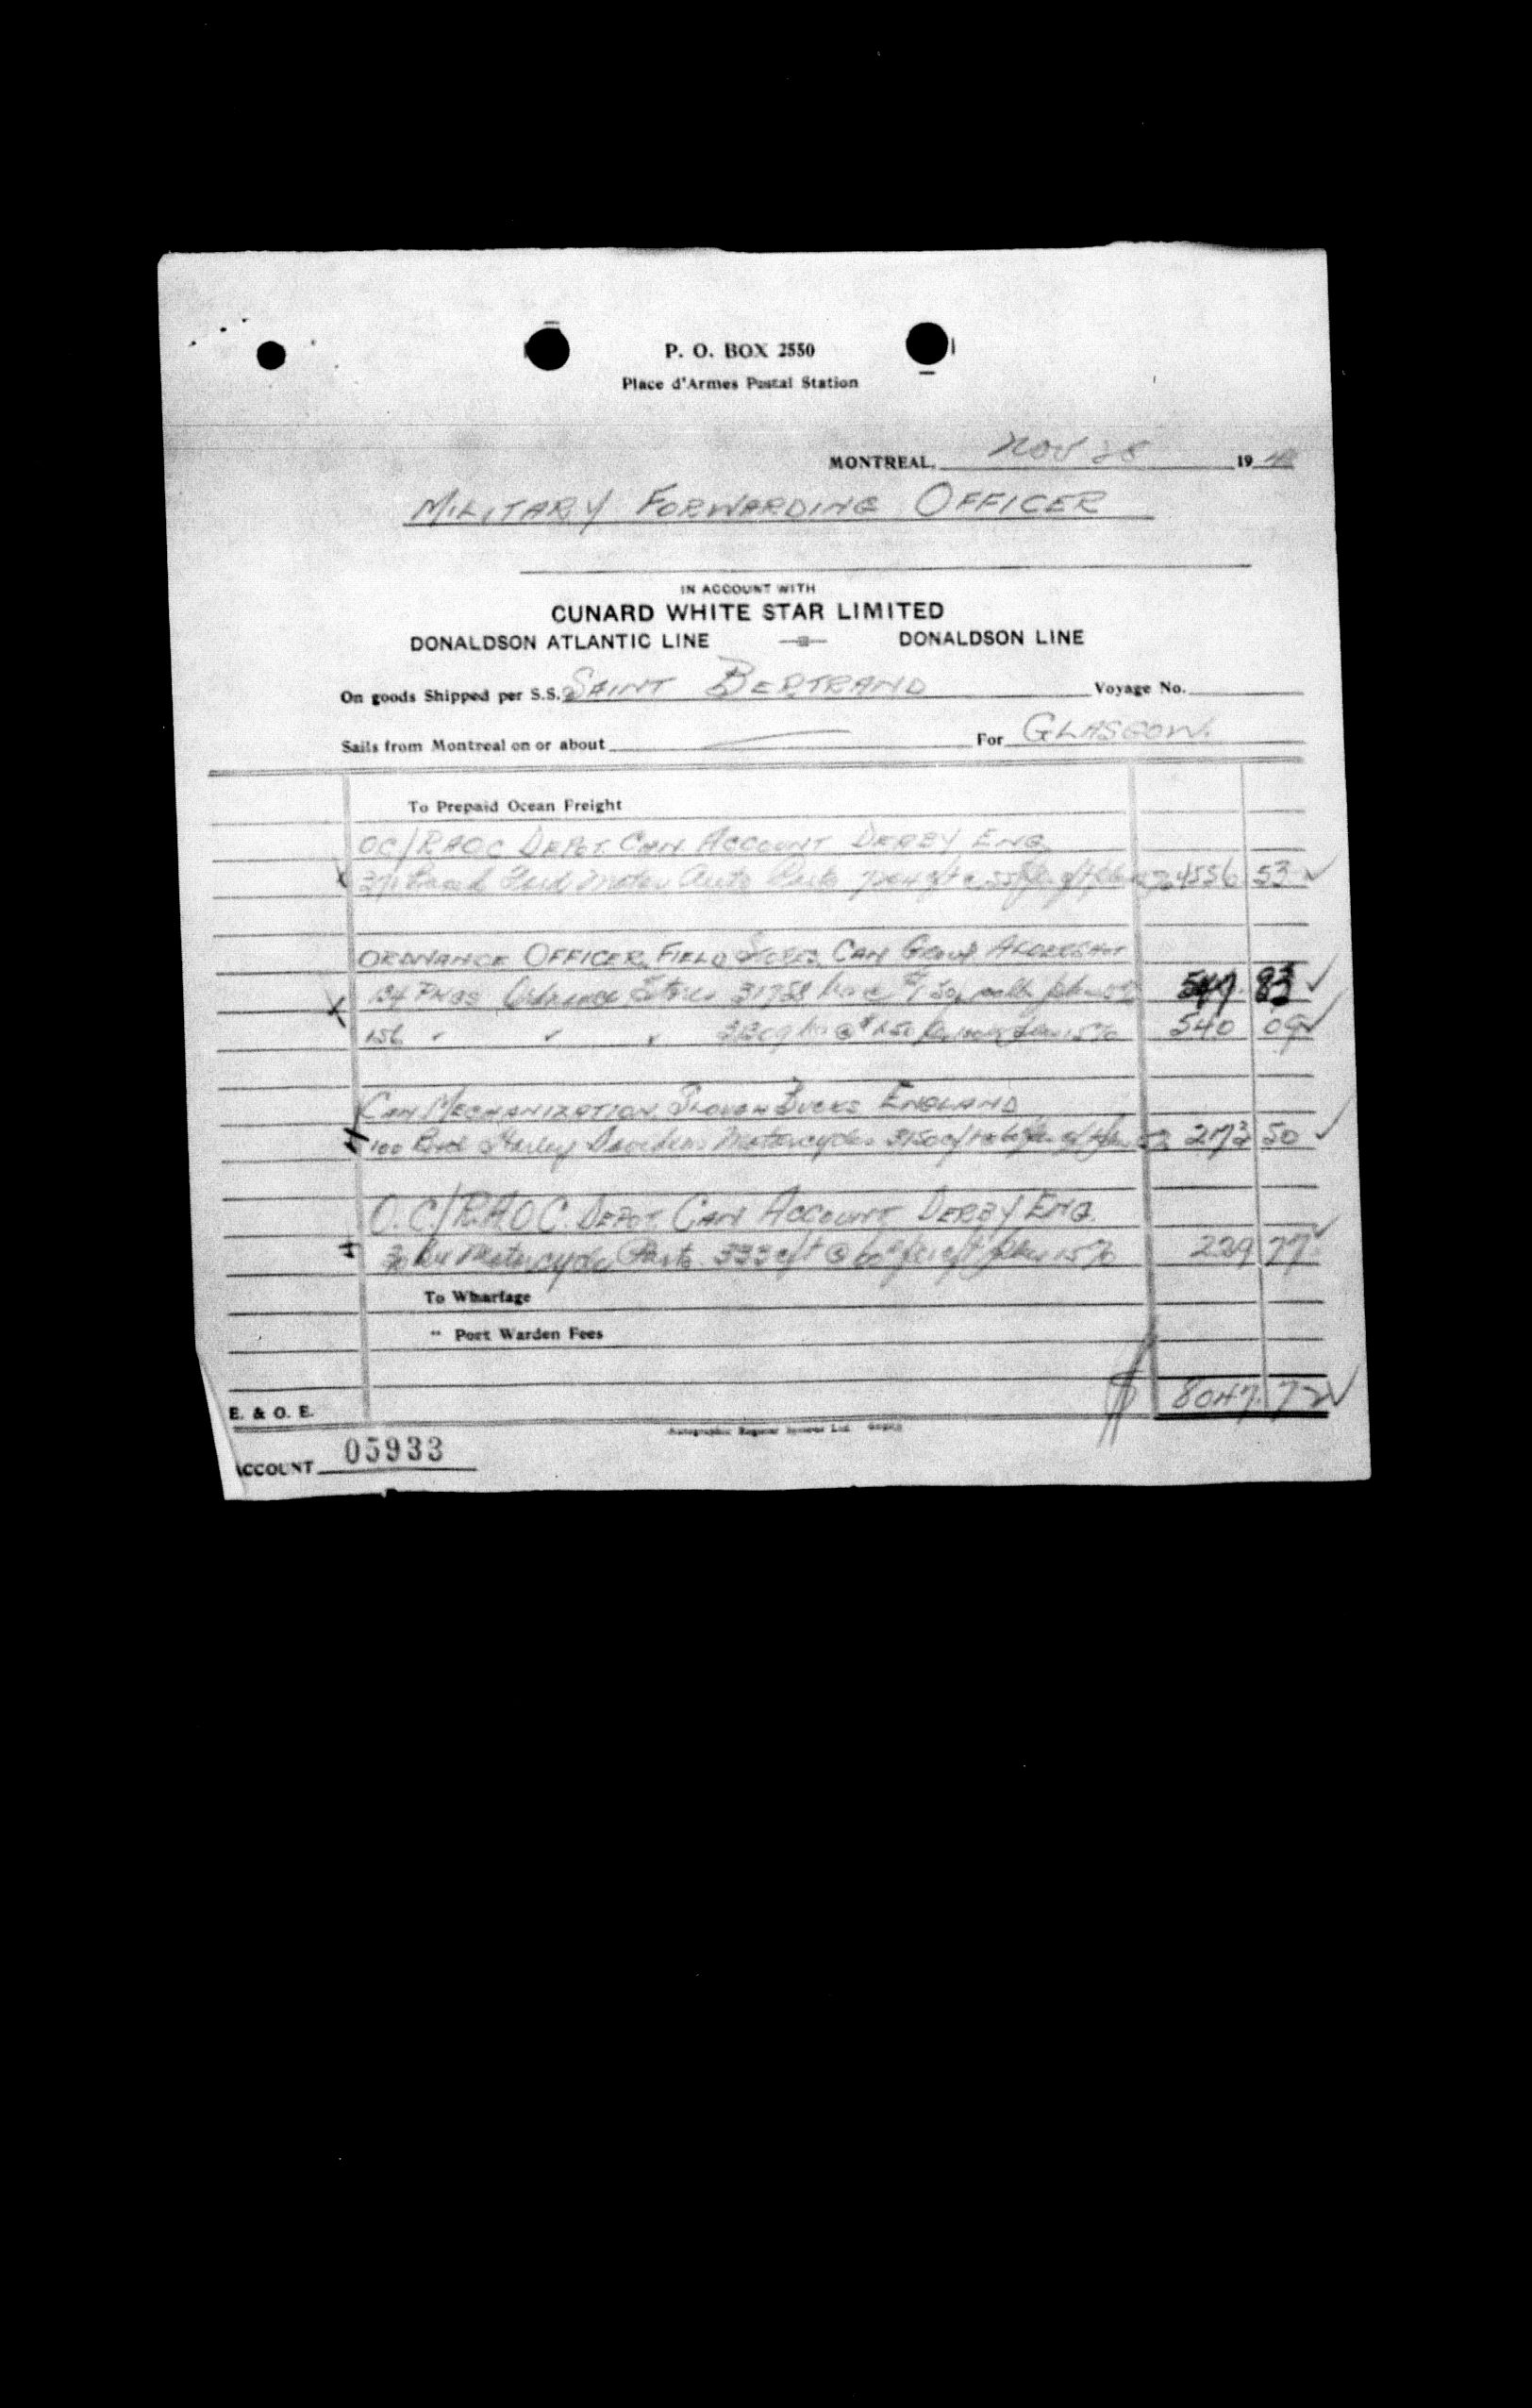 P. O. BOX 2550
Place d'Armes Postal Station
MONTREAL, Nov 28 19 40
MILITARY FORWARDING OFFICER
IN ACCOUNT WITH
CUNARD WHITE STAR LIMITED
DONALDSON ATLANTIC LINE DONALDSON LINE
On goods Shipped per S.S. SAINT BERTRAND Voyage No.
Sails from Montreal on or about For GLASGOW.
To Prepaid Ocean Freight
OC/RAOC DEPOT CAN ACCOUNT DERBY ENG.
371 Ford Motor Auto Parts 7204 c/ft @ 55 4556 53
ORDNANCE OFFICER FIELD STORES CAN GROUP ALDERSHOT
PKGS Ordnance Stores 31758 547 83
156 " " " @ $1.50 plus 15% 540 09
CAN MECHANIZATION SLOUGH BUCKS ENGLAND
100 Boxed Harley Davidson Motorcycles 3150 c/ft 2173 50
O.C./R.A.O.C. DEPOT CAN ACCOUNT DERBY ENG.
30 Motorcycle Parts 333 c/ft @ 60¢ per c/ft plus 15% 229 77
To Wharfage
" Port Warden Fees
$ 8047.72
E. & O. E.
Autographic Register Systems Ltd.
ACCOUNT 05933